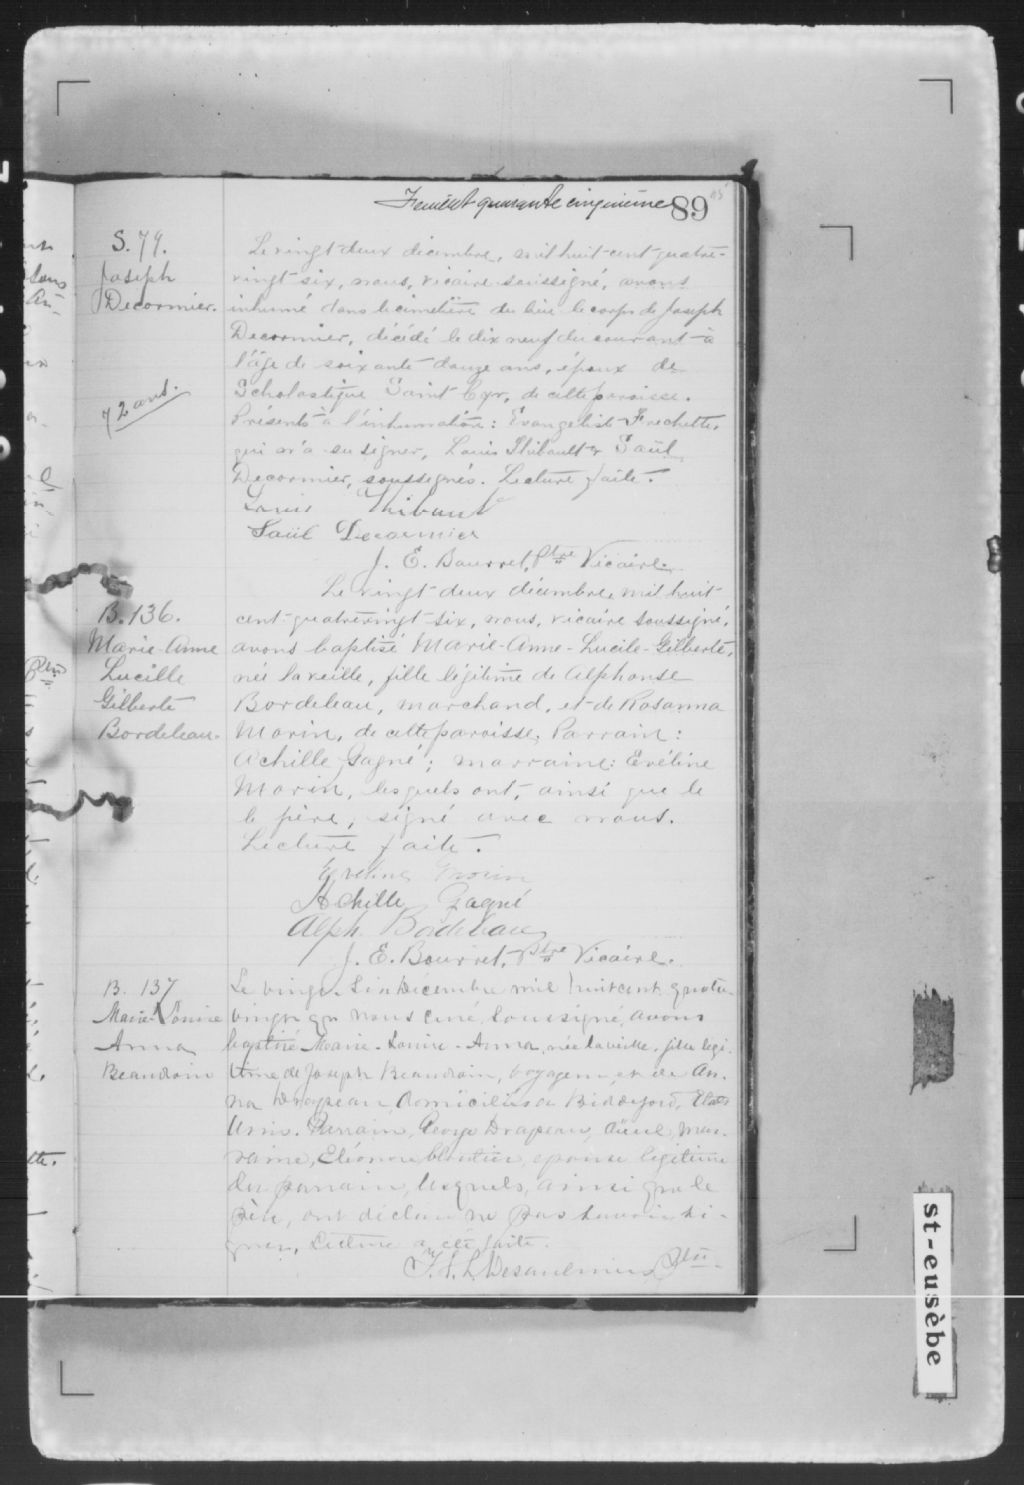 Feuillet quarante cinquième 89
S. 79.
Joseph
Decormier.
72 ans.
Le vingt-deux décembre, mil huit-cent-quatre-
vingt-six, nous, vicaire soussigné, avons
inhumé dans le cimetière du lieu le corps de Joseph
Decormier, décédé le dix neuf du courant à
l'âge de soixante douze ans, époux de
Scholastique Saint Cyr, de cette paroisse.
Présents à l'inhumation: Evangeliste Frechette,
qui n'a su signer, Louis Thibault & Saül
Decormier, soussignés. Lecture faite.
Louis Thibault
Saül Decormier
J. E. Bourret, Ptre Vicaire.
B. 136.
Marie-Anne
Lucille
Gilberte
Bordeleau.
Le vingt-deux décembre, mil huit-
cent-quatrevingt-six, nous, vicaire soussigné,
avons baptisé Marie-Anne-Lucile-Gilberte,
née la veille, fille légitime de Alphonse
Bordeleau, marchand, et de Rosanna
Morin, de cette paroisse. Parrain:
Achille Gagné; marraine: Eveline
Morin, lesquels ont, ainsi que le
le père, signé avec nous.
Lecture faite.
Eveline Morin
Achille Gagné
Alph. Bordeleau
J. E. Bourret, Ptre Vicaire.
B. 137
Marie Louise
Anna
Beaudoin
Le vingt-six Décembre mil huit cent quatre
vingt six nous curé, soussigné, avons
baptisé Marie-Louise-Anna, née la veille, fille legi-
time de Joseph Beaudoin, voyageur, et de An-
na Drapeau, domiciliés a Biddeford, Etats
Unis. Parrain, George Drapeau, aïeul, mar-
raine, Eléonore Cloutier, epouse legitime
du parrain, lesquels, ainsi que le
père, ont déclaré ne pas savoir si-
gner, Lecture a été faite.
Désaulniers Ptre
st-eusèbe